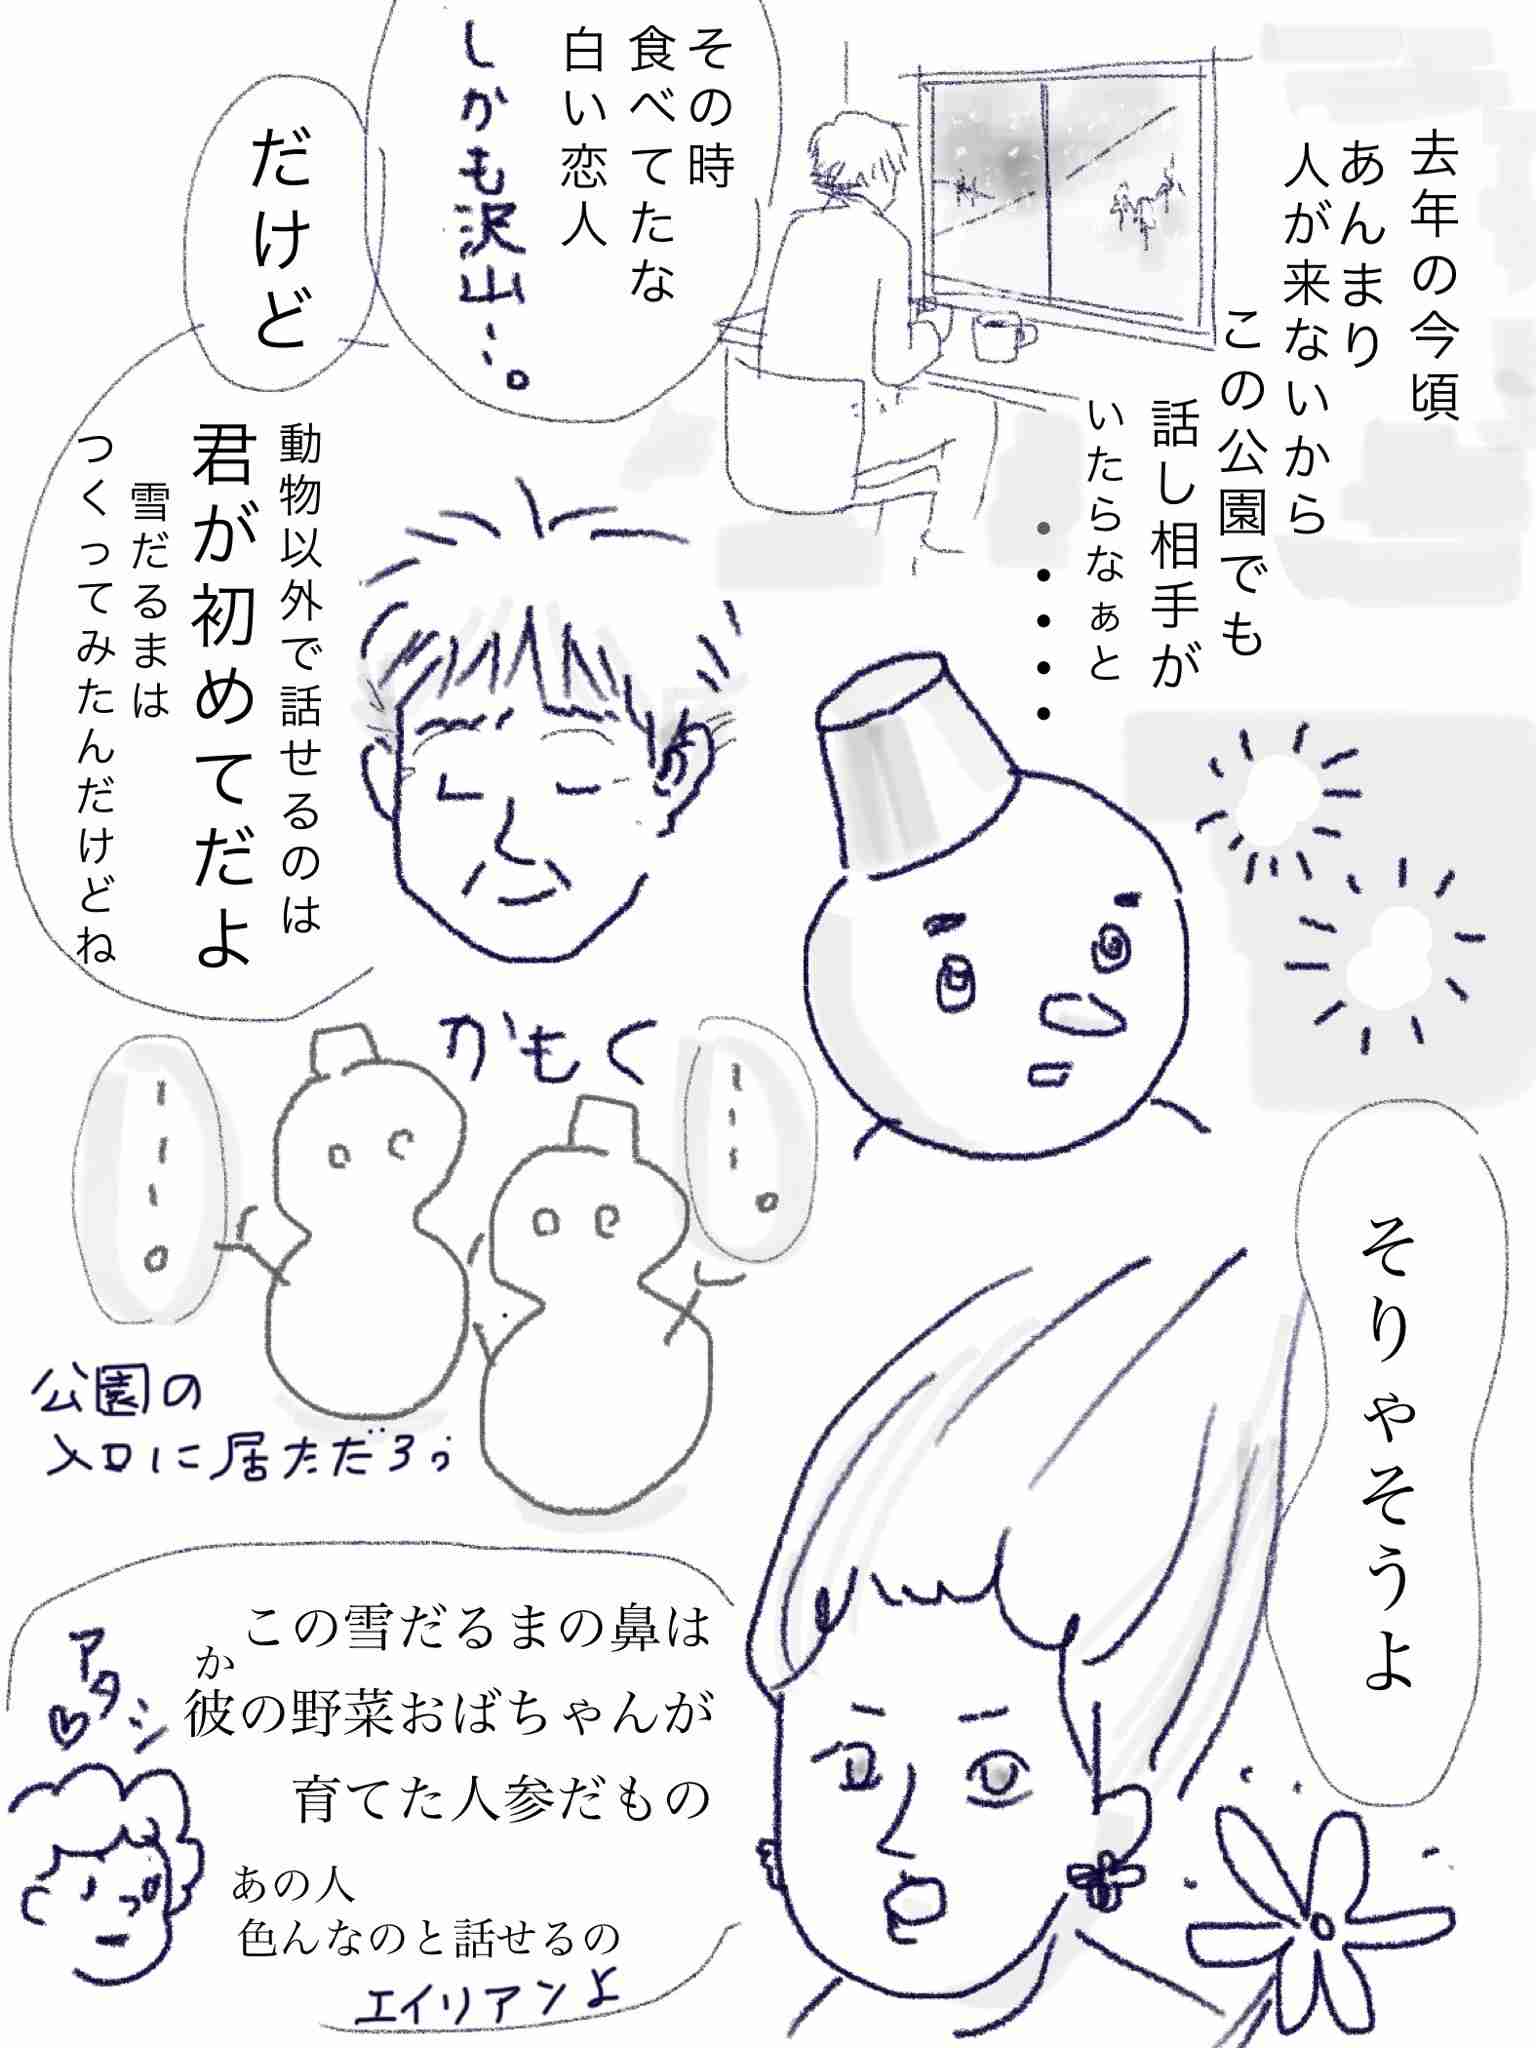 去年の今頃
あんまり
人が来ないから
この公園でも
話し相手が
いたらなぁと
・・・・・
その時
食べてたな
白い恋人
しかも沢山…。
だけど
動物以外で話せるのは
君が初めてだよ
雪だるまは
つくってみたんだけどね
かもく
…。
…。
公園の
入口に居ただろぅ
そりゃそうよ
この雪だるまの鼻は
か
彼の野菜おばちゃんが
育てた人参だもの
アタシ♡
あの人
色んなのと話せるの
エイリアンよ